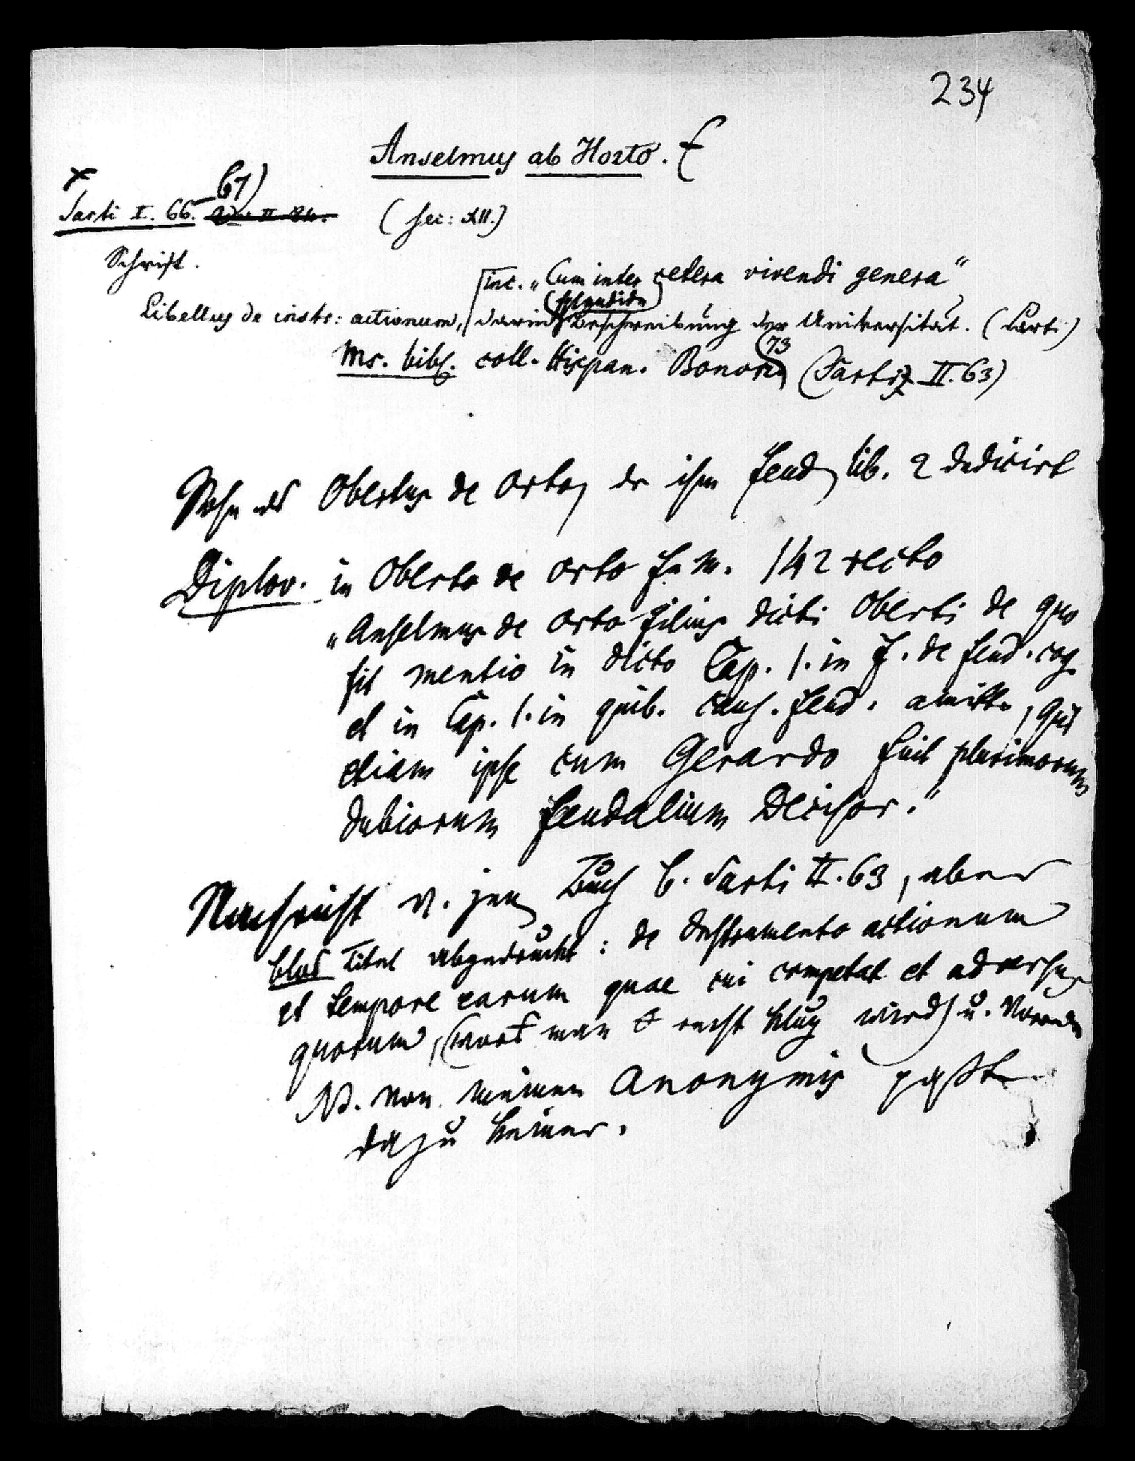 234
Anselmus ab Horto.
67)
Sarti I. 66.
(sec: XII.)
Schrift.
inc. „Cum inter cetera vivendi genera“
(splendide)
Libellus de instr: actionum, darin Beschreibung der Universität. (Sarti)
73
Ms. bibl. coll. Hispan. Bonon. (Sarti II. 63)
Sohn des Obertus de Orto, der ihm feud. lib. 2 dedicirt
Diplov. in Oberto de Orto 142 recto
„Anselmus de Orto filius dicti Oberti de quo
fit mentio in dicto Cap. 1. in f. de feud. cog.
et in Cap. 1. in quib. caus. feud. amitt., qui
etiam ipse cum Gerardo fuit plurimorum
dubiorum feudalium Decisor.“
Nachricht v. jen. Buch b. Sarti II. 63, aber
blos Titel abgedruckt: de Instrumento actionum
et tempore earum quae cui competat et adversus
quorum, (woraus man recht klug wird) u.
NB. von meinen Anonymis paßt
dazu keiner.